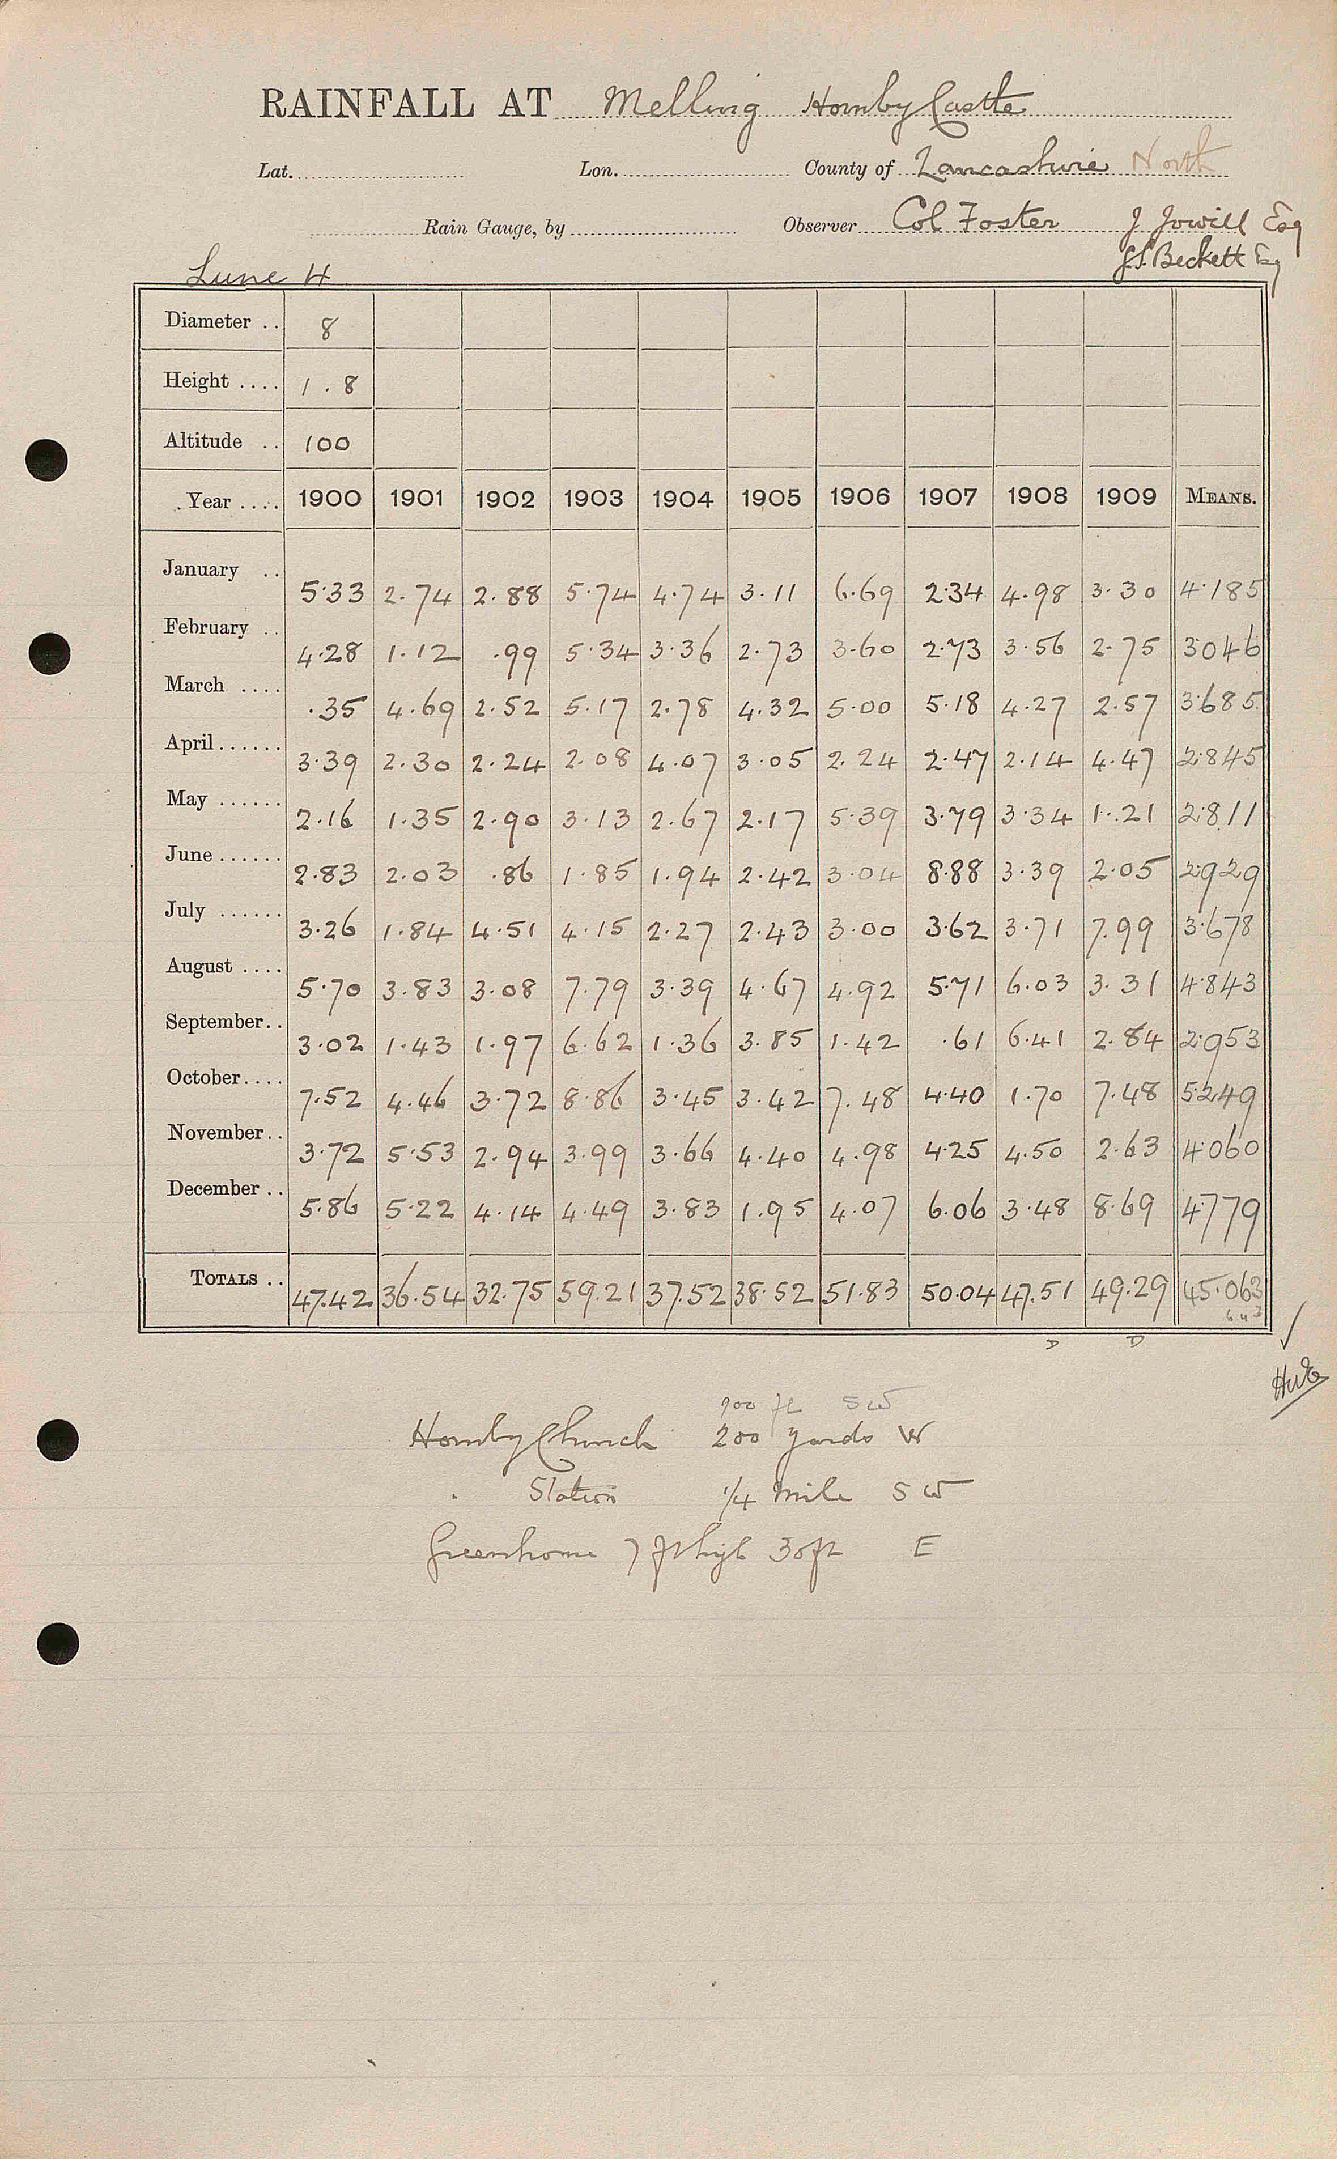 RAINFALL AT Melling Hornby Castle
Lat. Lon. County of Lancashire North
Rain Gauge, by Observer Col Foster J Jowill Esq
J.S. Beckett Esq
Lune 4
Diameter .. 8
Height .... 1.8
Altitude .. 100
Year .... 1900 1901 1902 1903 1904 1905 1906 1907 1908 1909 MEANS.
January .. 5.33 2.74 2.88 5.74 4.74 3.11 6.69 2.34 4.98 3.30 4.185
February .. 4.28 1.12 .99 5.34 3.36 2.73 3.60 2.73 3.56 2.75 3.046
March .... .35 4.69 2.52 5.17 2.78 4.32 5.00 5.18 4.27 2.57 3.685
April...... 3.39 2.30 2.24 2.08 4.07 3.05 2.24 2.47 2.14 4.47 2.845
May ...... 2.16 1.35 2.90 3.13 2.67 2.17 5.39 3.79 3.34 1.21 2.811
June ...... 2.83 2.03 .86 1.85 1.94 2.42 3.04 8.88 3.39 2.05 2.929
July ...... 3.26 1.84 4.51 4.15 2.27 2.43 3.00 3.62 3.71 7.99 3.678
August .... 5.70 3.83 3.08 7.79 3.39 4.67 4.92 5.71 6.03 3.31 4.843
September.. 3.02 1.43 1.97 6.62 1.36 3.85 1.42 .61 6.41 2.84 2.953
October.... 7.52 4.46 3.72 8.86 3.45 3.42 7.48 4.40 1.70 7.48 5.249
November.. 3.72 5.53 2.94 3.99 3.66 4.40 4.98 4.25 4.50 2.63 4.060
December .. 5.86 5.22 4.14 4.49 3.83 1.95 4.07 6.06 3.48 8.69 4.779
TOTALS .. 47.42 36.54 32.75 59.21 37.52 38.52 51.83 50.04 47.51 49.29 45.063
D D
900 ft SW
Hornby Church 200 yards W
" Station 1/4 mile SW
Greenhouse 7 ft high 30ft E